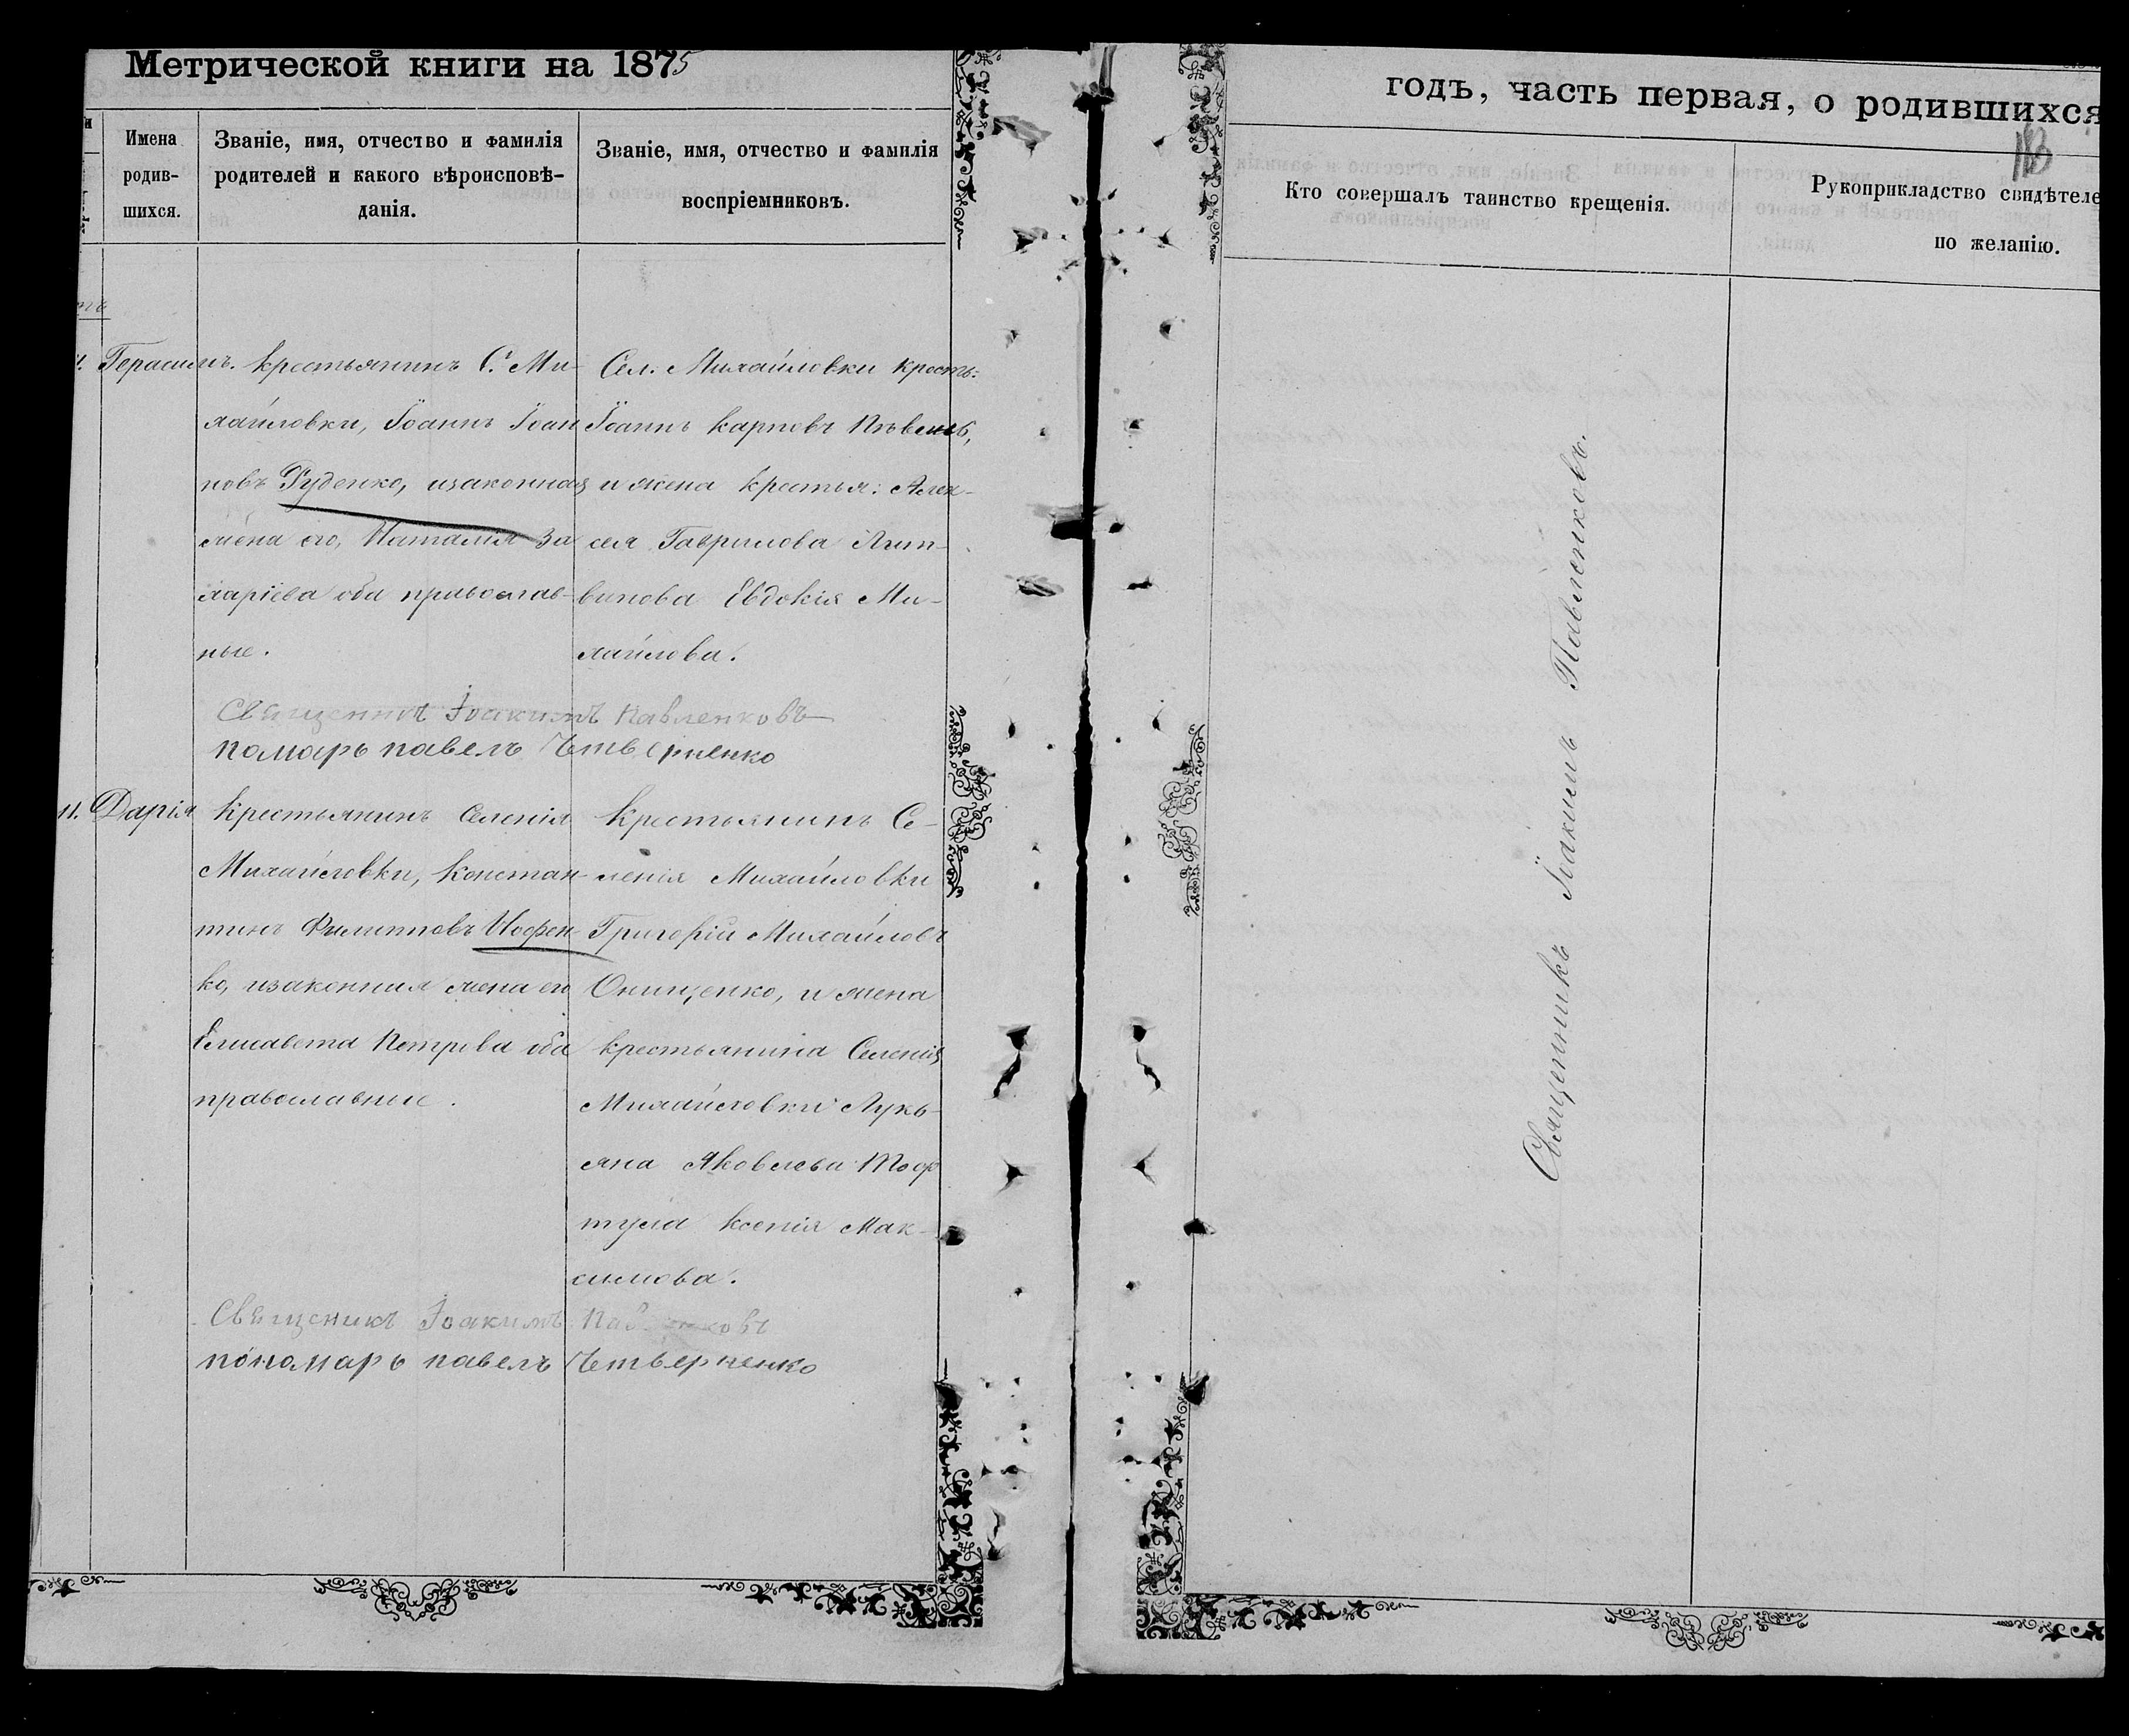 Метрической книги на 1875
Имена родив- шихся.
Званіе, имя, отчество и фамилія родителей и какого вѣроисповѣ- данія.
Званіе, имя, отчество и фамилія воспріемниковъ.
Герасимъ.
крестьянинъ С. Ми-
хайловки, Іоаннъ Іоан
новъ Руденко, изаконная
жена его, Наталія За
харіева оба православ-
ные.
Сел. Михайловки кресть:
Іоаннъ Карповъ Пѣвень,
и жена крестья: Алек-
сея Гаврилова Лит-
винова Евдокія Ми-
хайлова.
Священникъ Іоакимъ Павленковъ
помарь павелъ Четверненко
11. Дарія
крестьянинъ Селенія
Михайловки, Констан-
тинъ Филипповъ
ко, изаконная жена его
Елисавета Петрова оба
православные.
крестьянинъ Се-
ленія Михайловки
Григорій Михайловъ
Онищенко, и жена
крестьянина Селенія
Михайловки Лукь-
яна Яковлева
Ксенія Мак-
симова.
Священикъ Іоакимъ Павленковъ
пономарь павелъ Четверненко
годъ, часть первая, о родившихся
Кто совершалъ таинство крещенія.
Рукоприкладство свидѣтеле
по желанію.
Священникъ Іоакимъ Павленковъ.